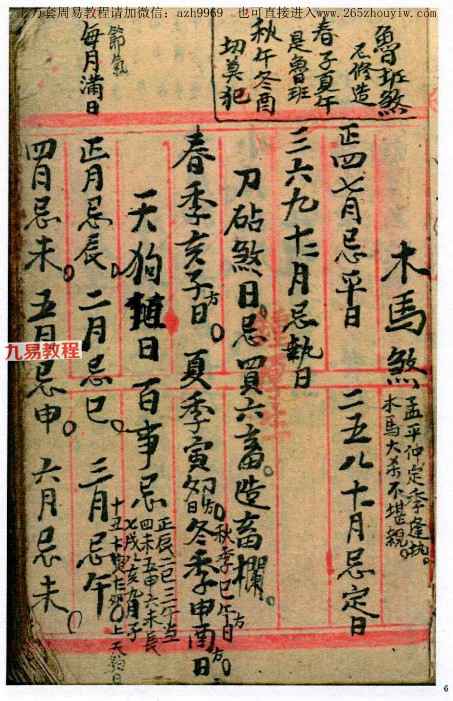 上万套周易教程请加微信：azh9969 也可直接进入www.265zhouyiw.com
魯班煞
忌修造
春子夏午
是魯班
秋午冬酉
切莫犯
節氣
每月滿日
木馬煞
孟平仲定季逢执。
木馬大杀不堪親。
正四七月忌平日 二五八十月忌定日
三六九十二月忌執日
刀砧煞日。忌買六畜。造畜欄。
春季亥子日。夏季寅卯日。冬季申酉日
方
秋季巳午日。
天狗日 百事忌
正辰二巳三午当
四未五申六未長
七戌八亥九月子
正月忌辰。二月忌巳。三月忌午
四月忌未。五月忌申。六月忌未。
九易教程
6